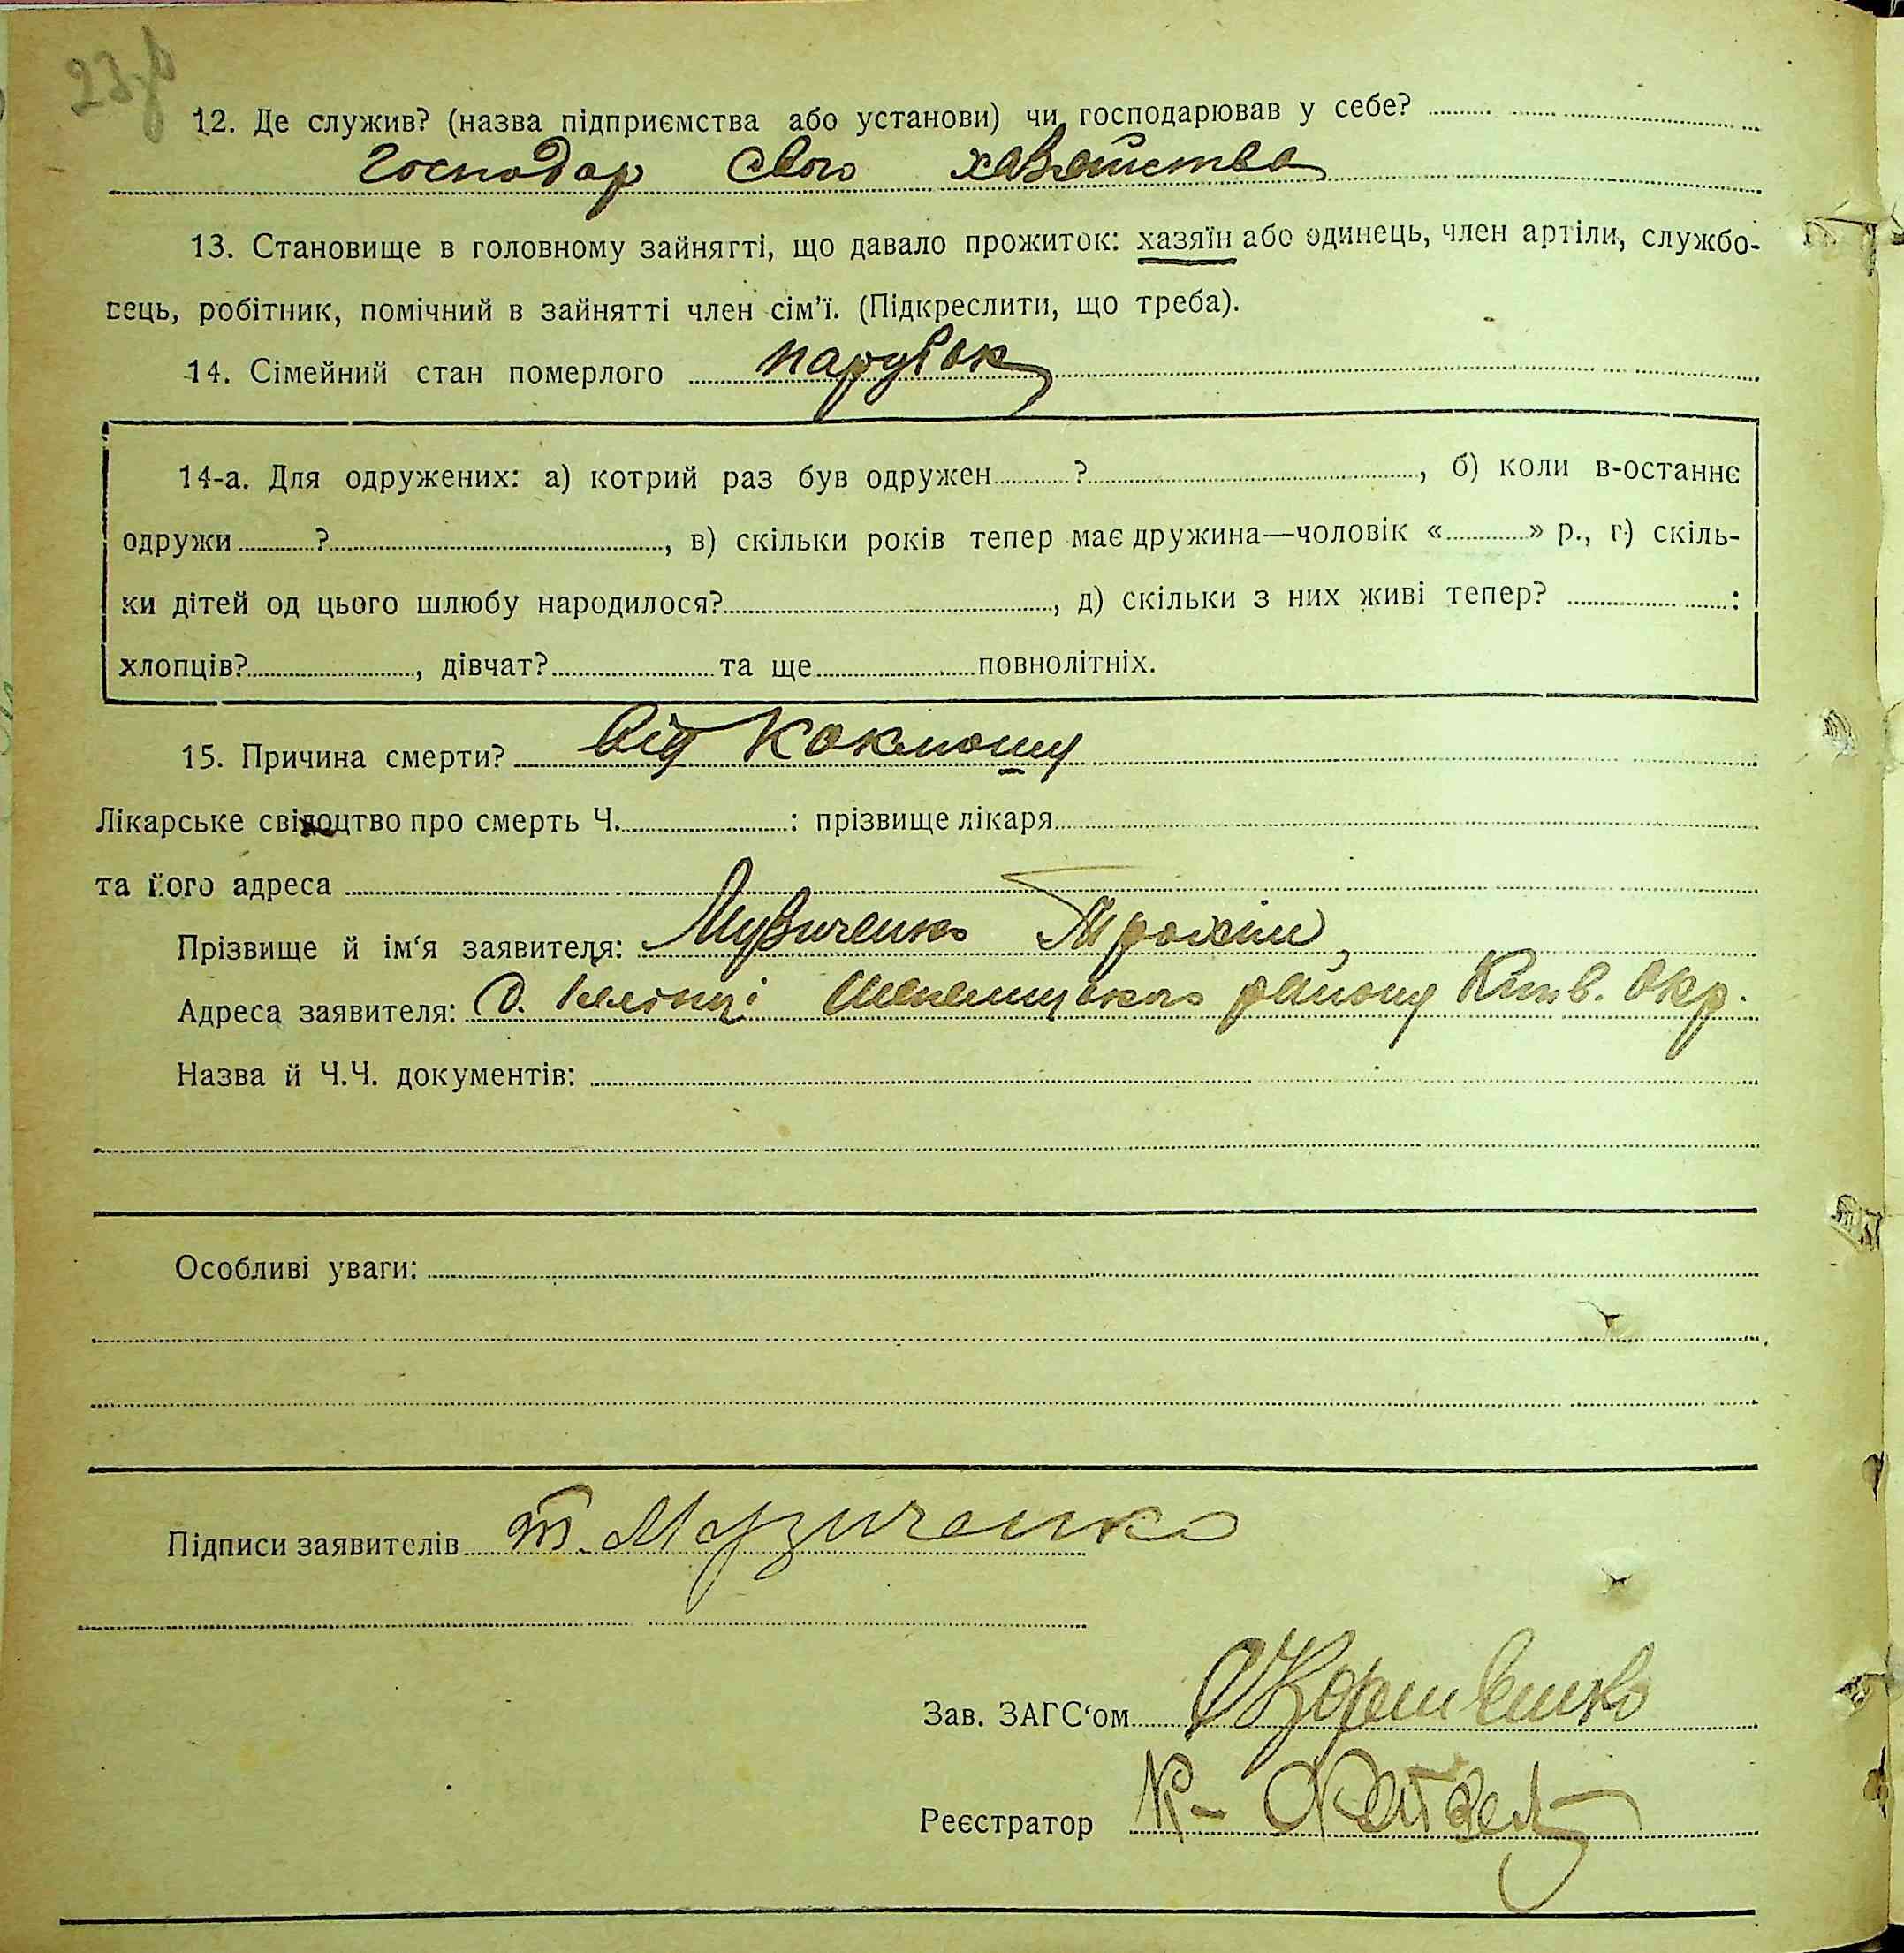 23зв
12. Де служив? (назва підприємства або установи) чи господарював у себе?
Господар свого хазяйства
13. Становище в головному зайнягті, що давало прожиток: хазяїн або одинець, член артіли, службо-
вець, робітник, помічний в зайнятті член сім’ї. (Підкреслити, що треба).
14. Сімейний стан померлого парубок
14-а. Для одружених: а) котрий раз був одружен ?, б) коли в-останнє
одружи ?, в) скільки років тепер має дружина—чоловік « » р., г) скіль-
ки дітей од цього шлюбу народилося?, д) скільки з них живі тепер? :
хлопців?, дівчат? та ще повнолітніх.
15. Причина смерти? Від Коклюшу
Лікарське свідоцтво про смерть Ч. : прізвище лікаря
та його адреса
Прізвище й ім‘я заявителя: Музиченко Трохим
Адреса заявителя: району Київ. Окр.
Назва й Ч.Ч. документів:
Особливі уваги:
Підписи заявителів Т. Музиченко
Зав. ЗАГС‘ом
Реєстратор